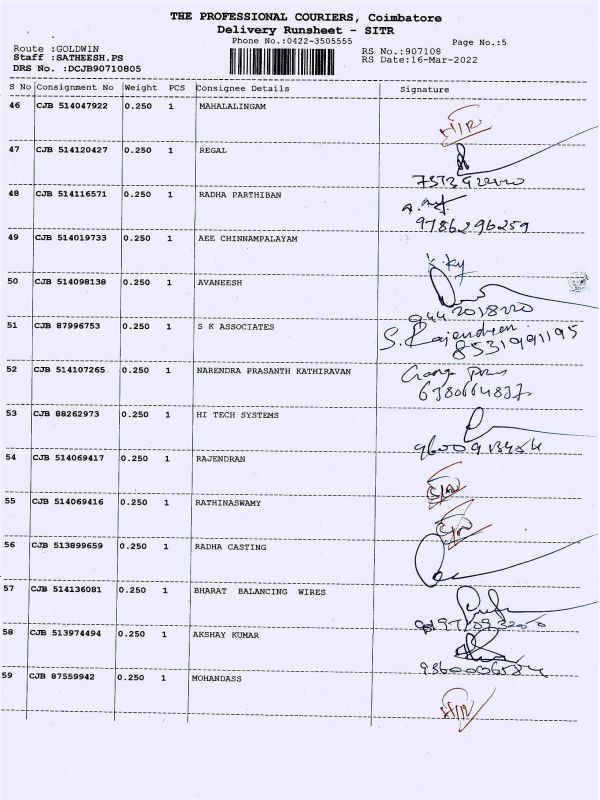 THE PROFESSIONAL COURIERS, Coimbatore
Delivery Runsheet - SITR
Phone No.:0422-3505555
Page No.:5
Route :GOLDWIN
Staff :SATHEESH.PS
DRS No. :DCJB90710805
RS No.:907108
RS Date:16-Mar-2022
S No Consignment No Weight PCS Consignee Details Signature
46 CJB 514047922 0.250 1 MAHALALINGAM
47 CJB 514120427 0.250 1 REGAL
48 CJB 514116571 0.250 1 RADHA PARTHIBAN
9786296259
49 CJB 514019733 0.250 1 AEE CHINNAMPALAYAM
50 CJB 514098138 0.250 1 AVANEESH
9442018220
51 CJB 87996753 0.250 1 S K ASSOCIATES
S. Rajendran
8531991195
52 CJB 514107265 0.250 1 NARENDRA PRASANTH KATHIRAVAN
6380664837
53 CJB 88262973 0.250 1 HI TECH SYSTEMS
54 CJB 514069417 0.250 1 RAJENDRAN
55 CJB 514069416 0.250 1 RATHINASWAMY
56 CJB 513899659 0.250 1 RADHA CASTING
57 CJB 514136081 0.250 1 BHARAT BALANCING WIRES
58 CJB 513974494 0.250 1 AKSHAY KUMAR
59 CJB 87559942 0.250 1 MOHANDASS